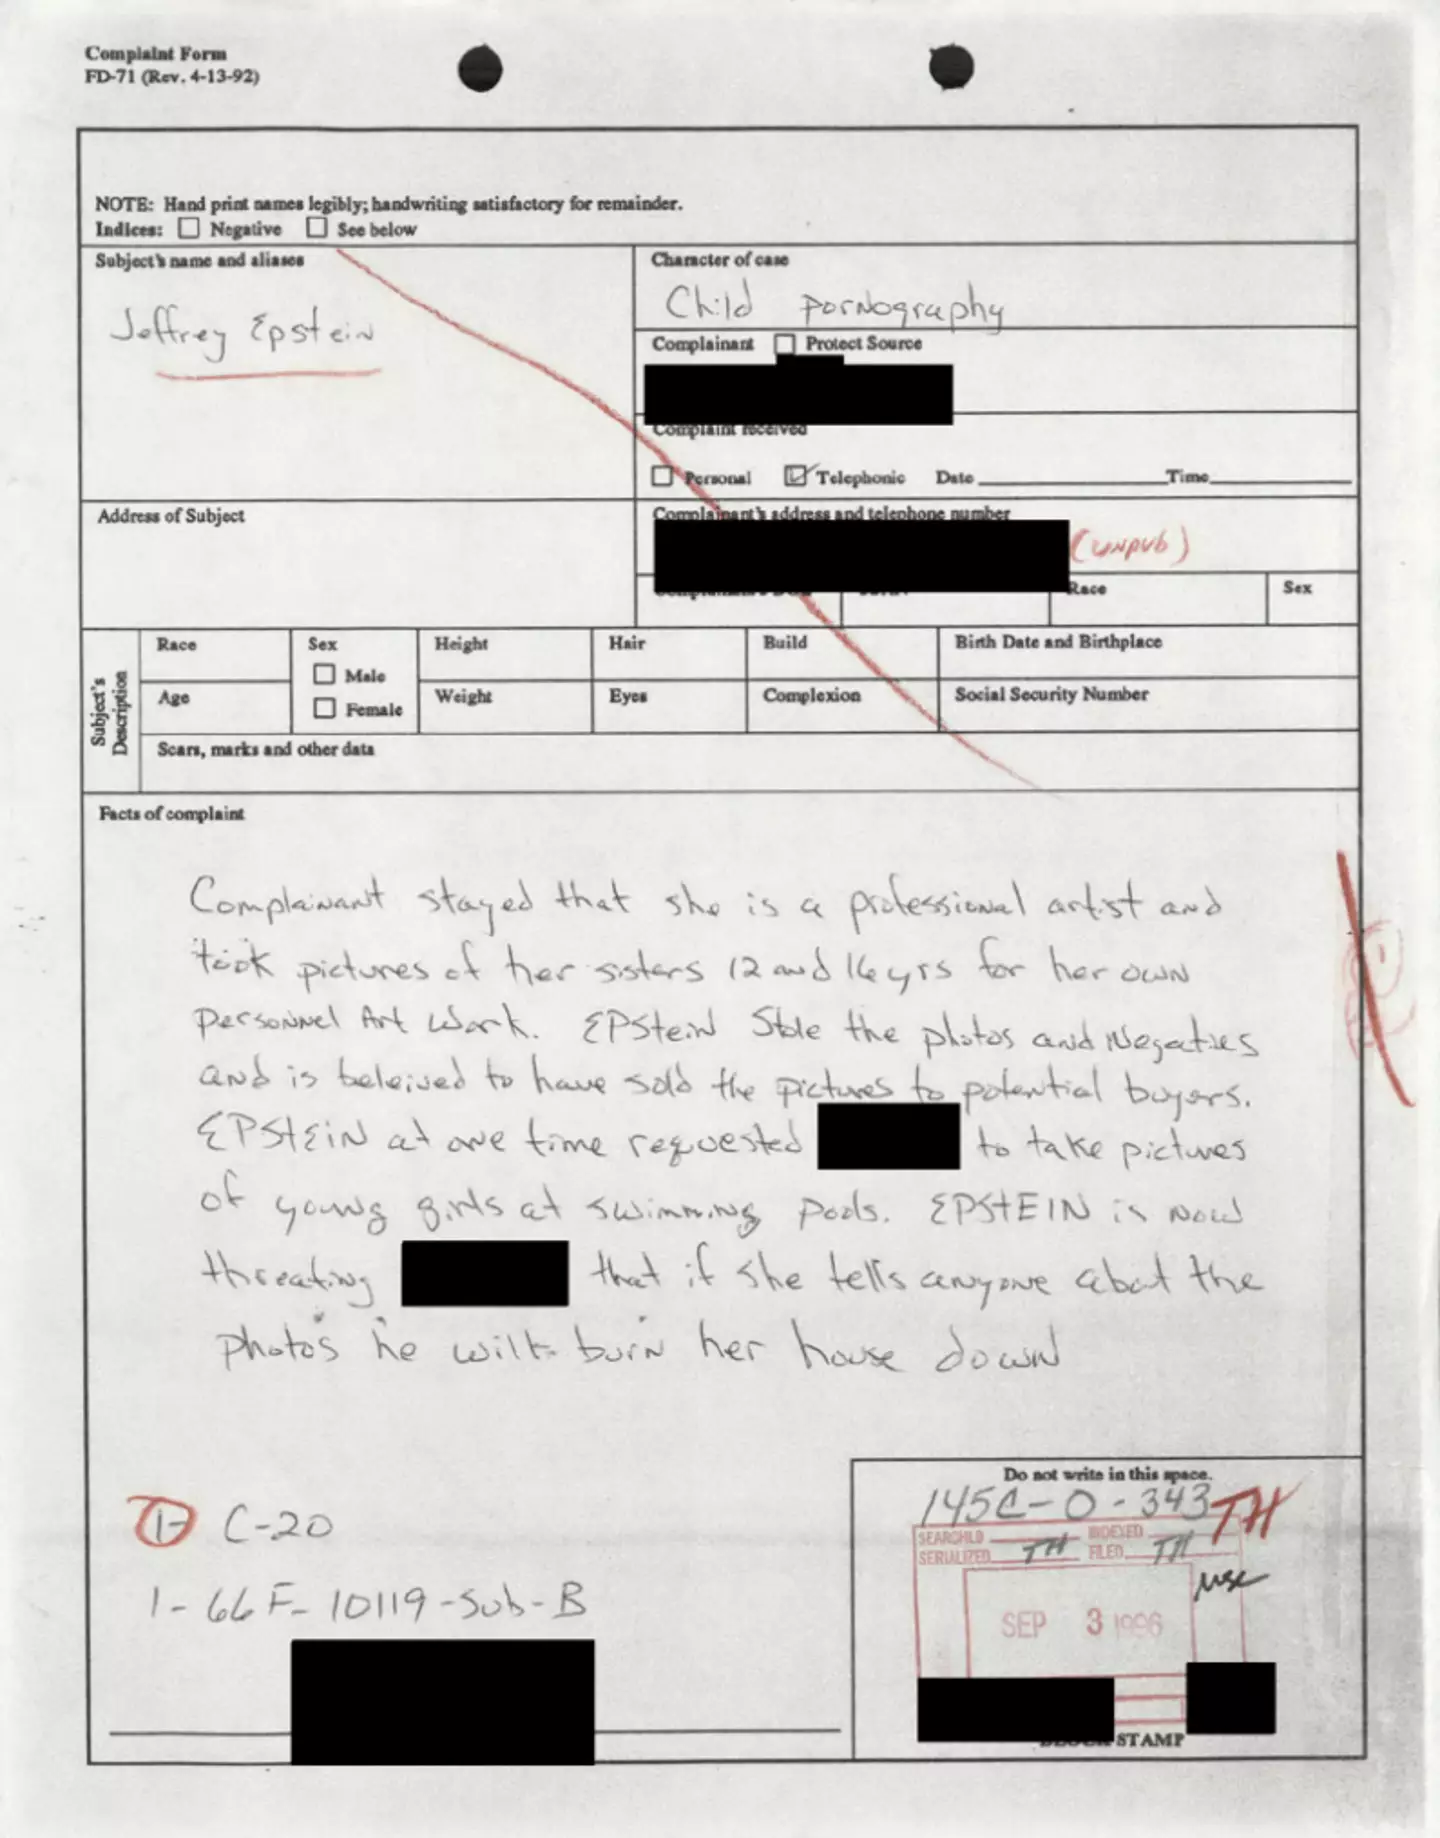 Complaint Form
FD-71 (Rev. 4-13-92)
NOTE: Hand print names legibly; handwriting satisfactory for remainder.
Indices: Negative See below
Subject's name and aliases
Jeffrey Epstein
Character of case
Child pornography
Complainant Protect Source
Complaint received
Personal Telephonic Date Time
Address of Subject
Complainant's address and telephone number
(unpub)
Race
Sex
Subject's Description
Race
Sex
Male
Female
Height
Hair
Build
Birth Date and Birthplace
Age
Weight
Eyes
Complexion
Social Security Number
Scars, marks and other data
Facts of complaint
Complainant stayed that she is a professional artist and
took pictures of her sisters 12 and 16 yrs for her own
personnel Art work. EPStein Stole the photos and Negatives
and is beleived to have sold the pictures to potential buyers.
EPStEiN at one time requested to take pictures
of young girls at swimming pools. EPStEIN is now
threating that if she tells anyone about the
photos he will burn her house down
1- C-20
1- 66F-10119-Sub-B
Do not write in this space.
145C-0-343 TH
SEARCHED INDEXED
SERIALIZED TH FILED TH
SEP 3 1996
STAMP